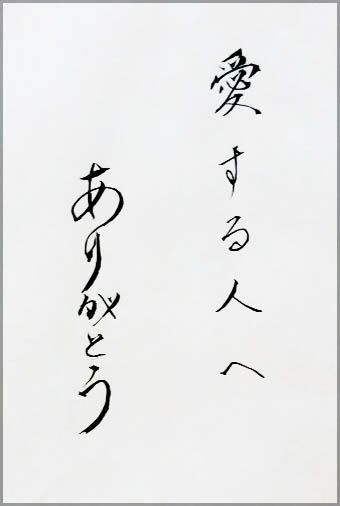 愛する人へ
ありがとう